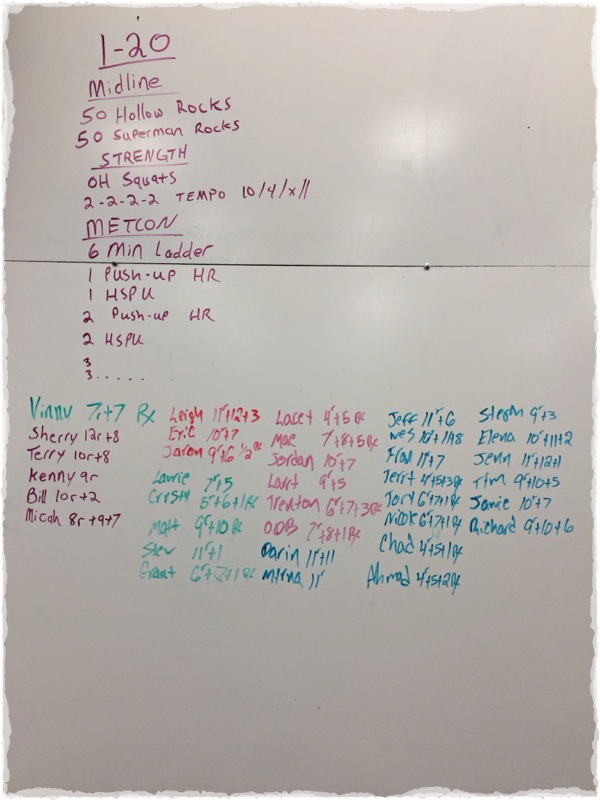 1-20
Midline
50 Hollow Rocks
50 Superman Rocks
STRENGTH
OH Squats
2-2-2-2 TEMPO 10/4/x/1
METCON
6 Min Ladder
1 Push-up HR
1 HSPU
2 Push-up HR
2 HSPU
3
3.....
Vinny 7r+7 Rx
Sherry 12r+8
Terry 10r+8
Kenny 9r
Bill 10r+2
Micah 8r+9+7
Leigh 11r+12+3
Eric 10r+7
Jaron 9r+6 1/2 Rx
Laurie 7r+5
Cristy 5r+6+1 Rx
Matt 9r+10 Rx
Stev 11r+1
Grant 6r+7+1 Rx
Lacey 4r+5 Rx
Mae 7r+8+5 Rx
Jordan 10r+7
9r+5
Trenton 6r+7+3 Rx
ODB 7r+8+1 Rx
Darin 11r+11
Mirna 11r
Jeff 11r+6
Wes 10r+11+8
Fran 11r+7
4r+5+3 Rx
Tory 6r+7+1 Rx
Nick 6r+7+1 Rx
Chad 4r+5+1 Rx
Ahmad 4r+5+2 Rx
Steph 9r+3
Elena 10r+11+2
Jenn 11r+12+1
Tim 9r+10+5
Jamie 10r+7
Richard 9r+10+6